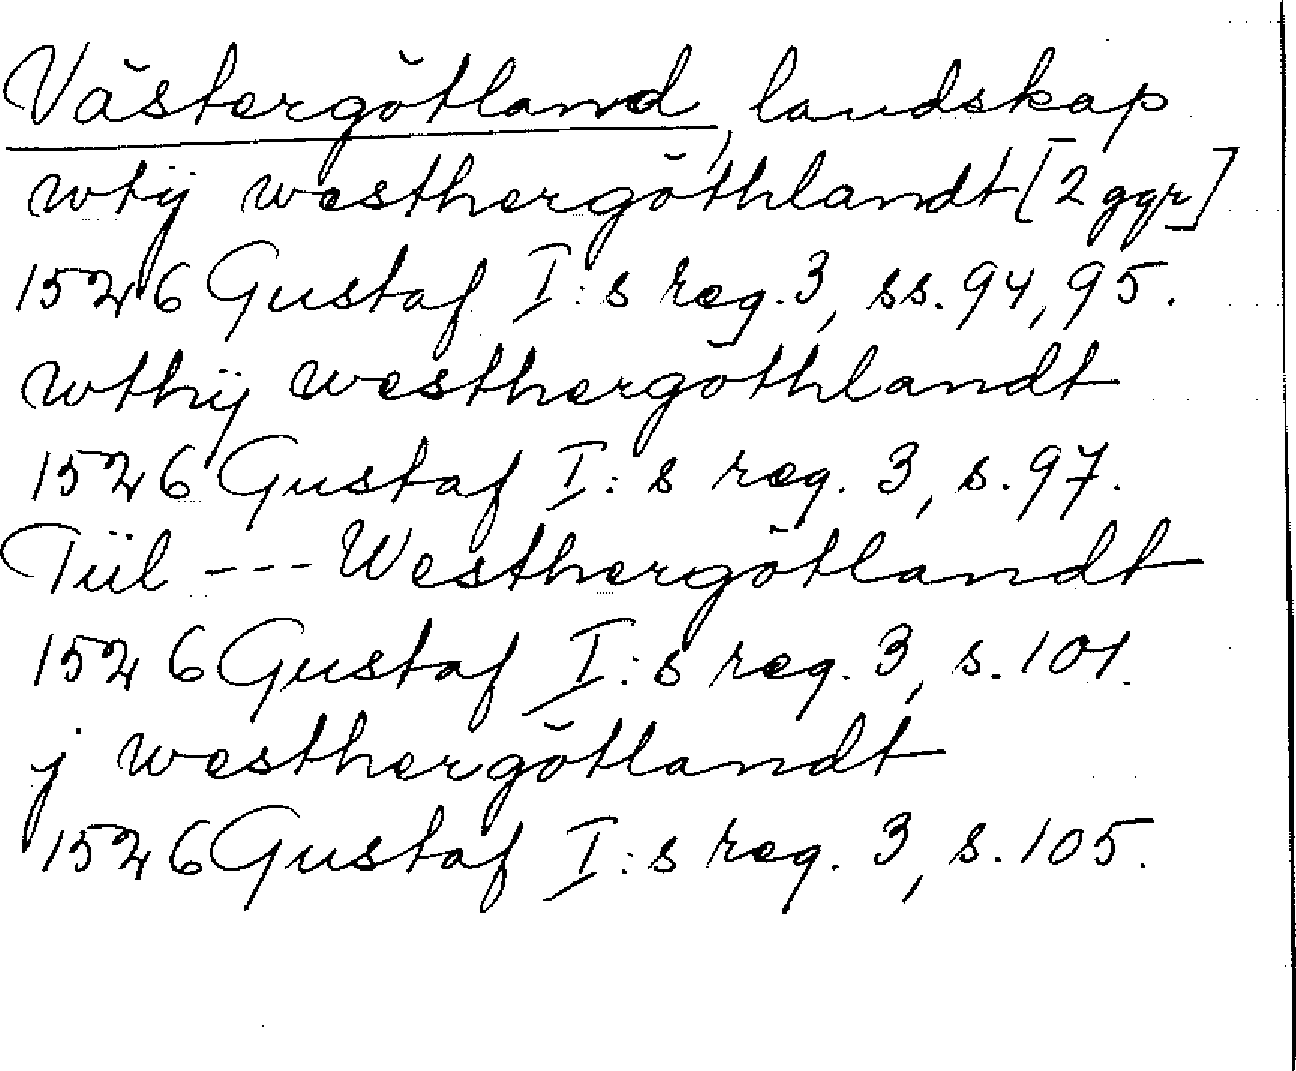 Västergötland, landskap
wtij westhergöthlandt [2 ggr]
1526 Gustaf I:s reg. 3, ss. 94, 95.
wthij westhergöthlandt
1526 Gustaf I:s reg. 3, s. 97.
Tiil --- Westhergötlandt
1526 Gustaf I:s reg. 3, s. 101.
j westhergötlandt
1526 Gustaf I:s reg. 3, s. 105.